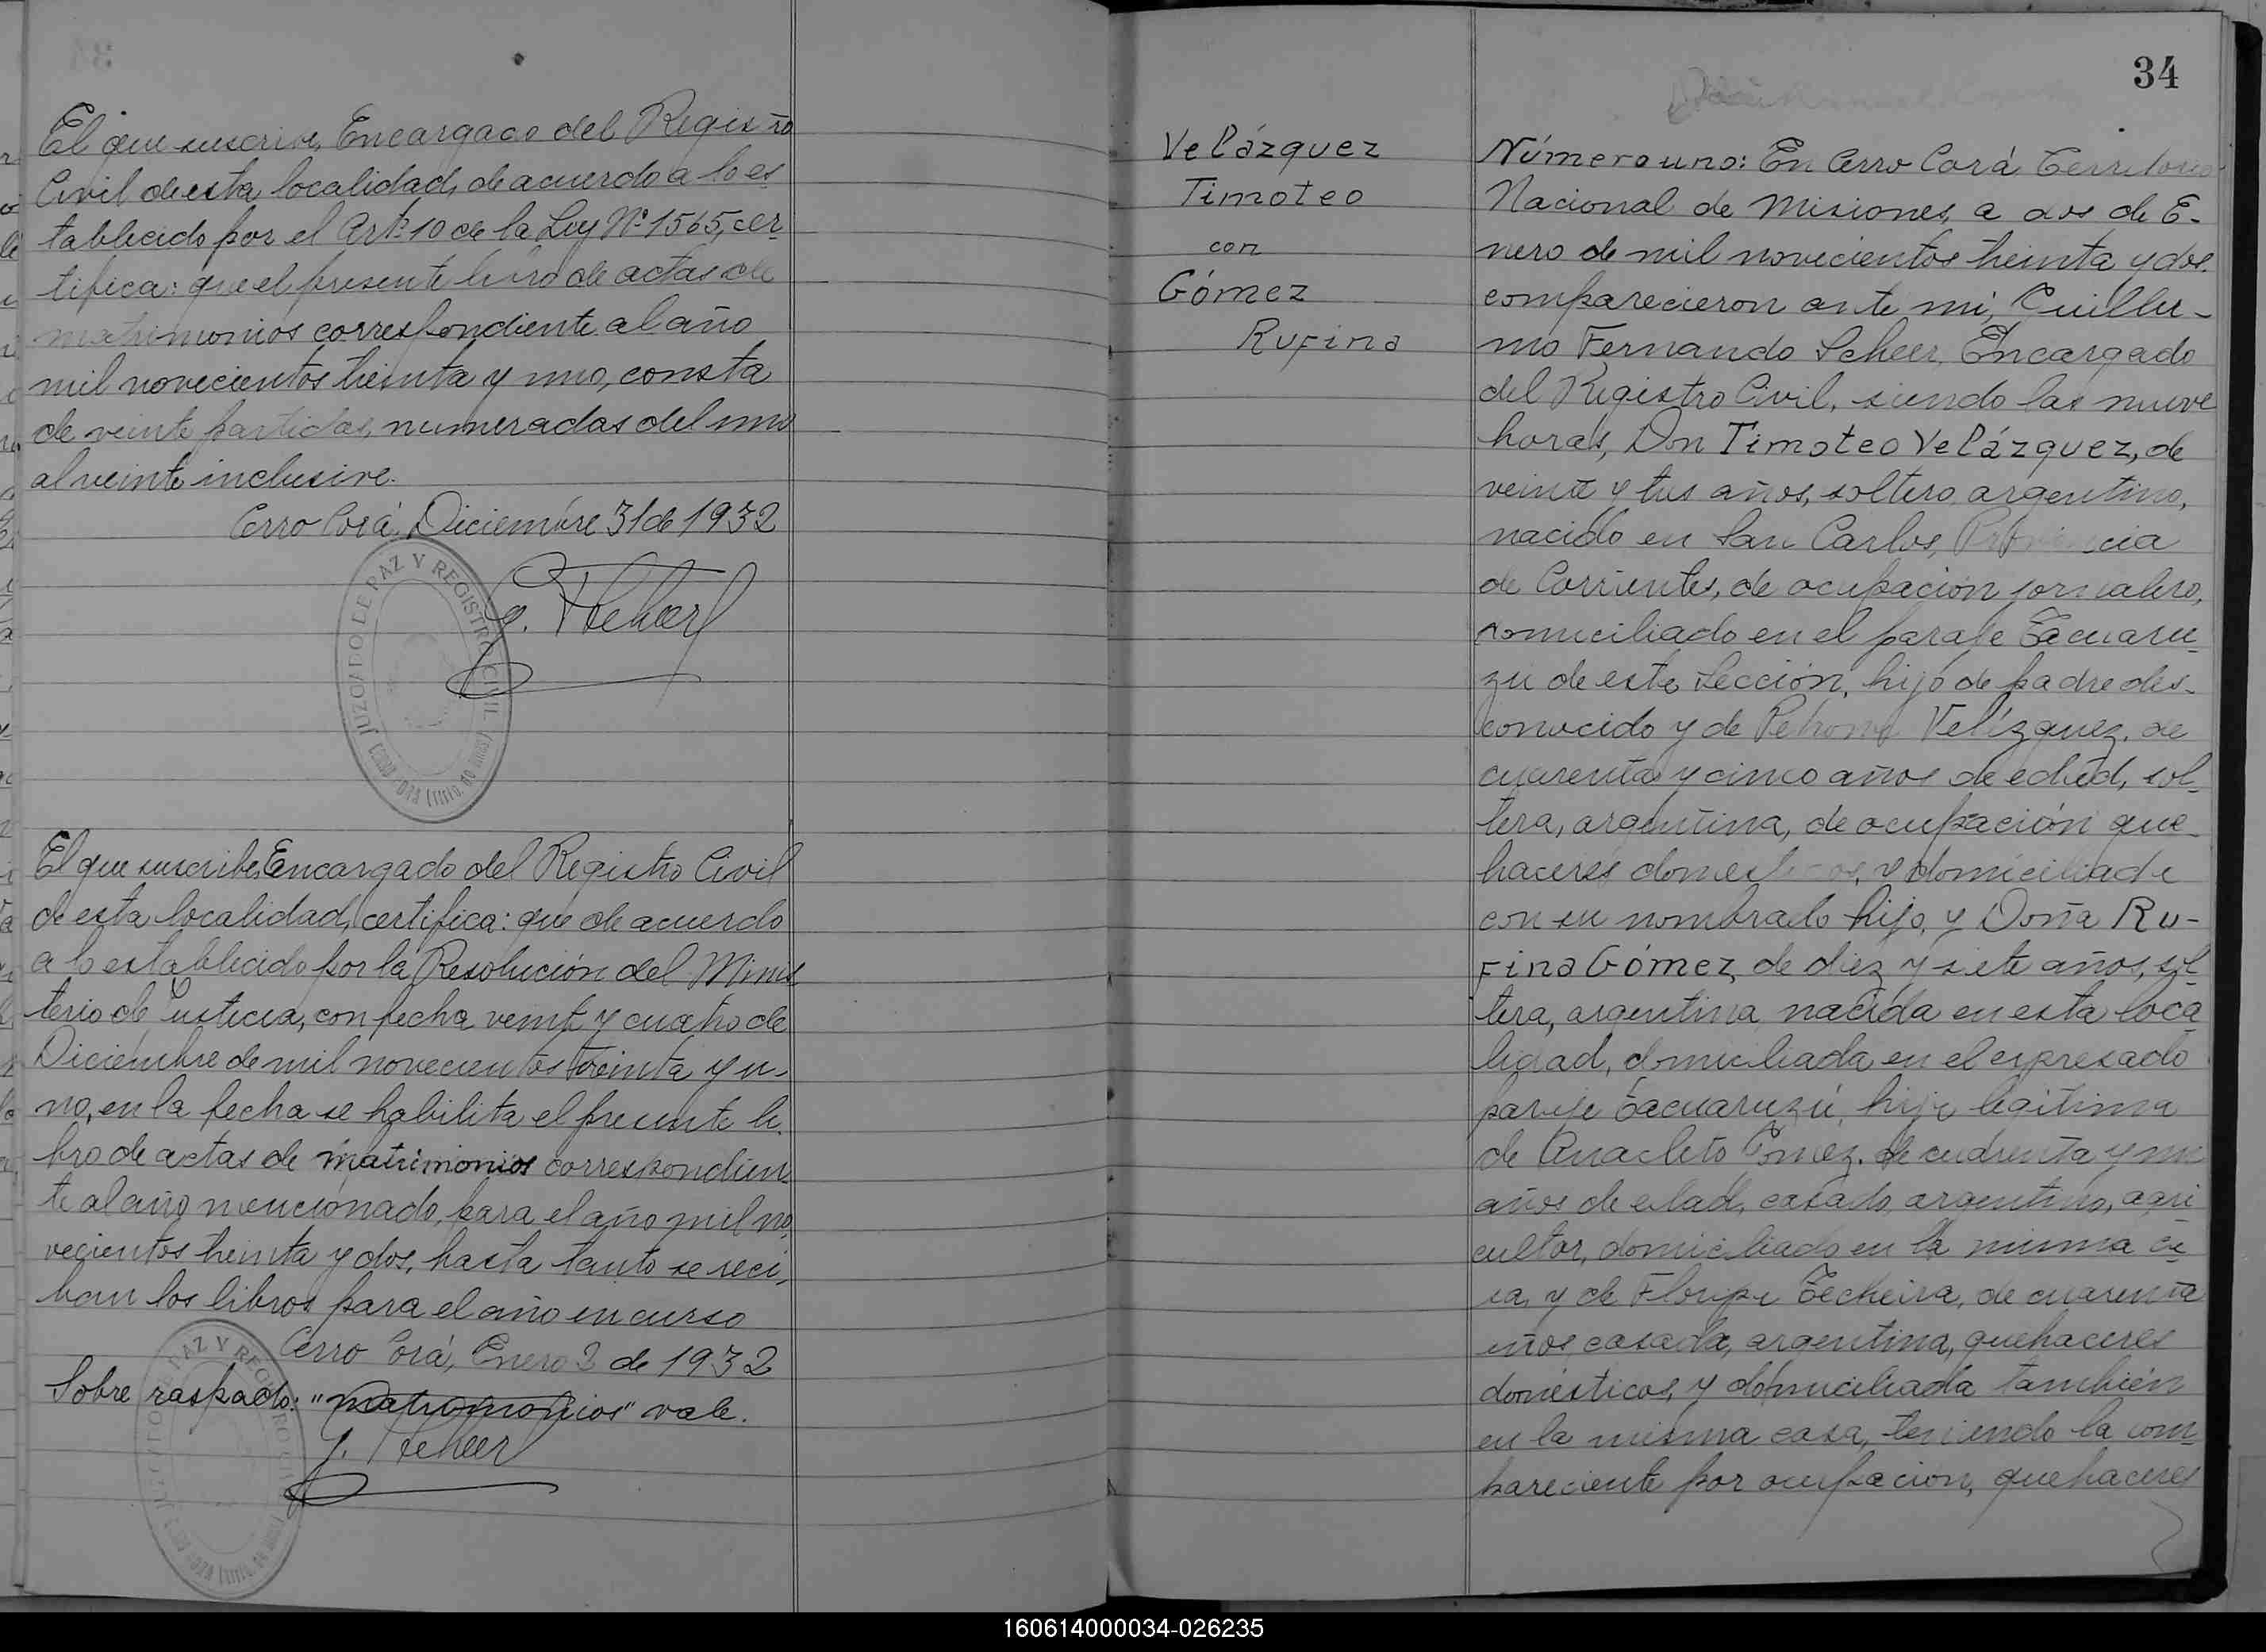 El que suscribe, Encargado del Registro
Civil de esta localidad, de acuerdo a lo es
tablecido por el Art. 10 de la Ley Nº 1565, cer-
tifica: que el presente libro de actas de
matrimonios correspondiente al año
mil novecientos treinta y uno, consta
de veinte partidas, numeradas del uno
al veinte inclusive.
Cerro Corá, Diciembre 31 de 1932
JUZGADO DE PAZ Y REGISTRO CIVIL
El que suscribe, Encargado del Registro Civil
de esta localidad, certifica: que de acuerdo
a lo establecido por la Resolución del Minis
terio de Justicia, con fecha veinte y cuatro de
Diciembre de mil novecientos treinta y u-
no, en la fecha se habilita el presente li-
bro de actas de matrimonios correspondien-
te al año mencionado, para el año mil no-
vecientos treinta y dos, hasta tanto se reci-
ban los libros para el año en curso
Cerro Corá, Enero 2 de 1932
Sobre raspado: "matrimonios" vale.
G. F. Scheer
34
Velázquez
Timoteo
con
Gómez
Rufina
Número uno: En Cerro Corá Territorio
Nacional de Misiones, a dos de E-
nero de mil novecientos treinta y dos.
comparecieron ante mi, Guiller-
mo Fernando Scheer, Encargado
del Registro Civil, siendo las nueve
horas, Don Timoteo Velázquez, de
veinte y tres años, soltero, argentino,
nacido en San Carlos, Provincia
de Corrientes, de ocupación jornalero,
domiciliado en el paraje Tacuaru-
zú de esta Sección, hijo de padre des-
conocido y de Petrona Velázquez, de
cuarenta y cinco años de edad, sol-
tera, argentina, de ocupación que-
haceres domesticos, y domiciliada
con su nombrado hijo, y Doña Ru-
fina Gómez, de diez y siete años, sol-
tera, argentina, nacida en esta loca
lidad, domiciliada en el expresado
paraje Tacuaruzú, hija legítima
de Anacleto Gomez, de cuarenta y un
años de edad, casado, argentino, agri
cultor, domiciliado en la misma ca
sa, y de Floripe Techeira, de cuarenta
años, casada, argentina, quehaceres
domésticos, y domiciliada también
en la misma casa, teniendo la com-
pareciente por ocupacion, quehaceres
160614000034-026235